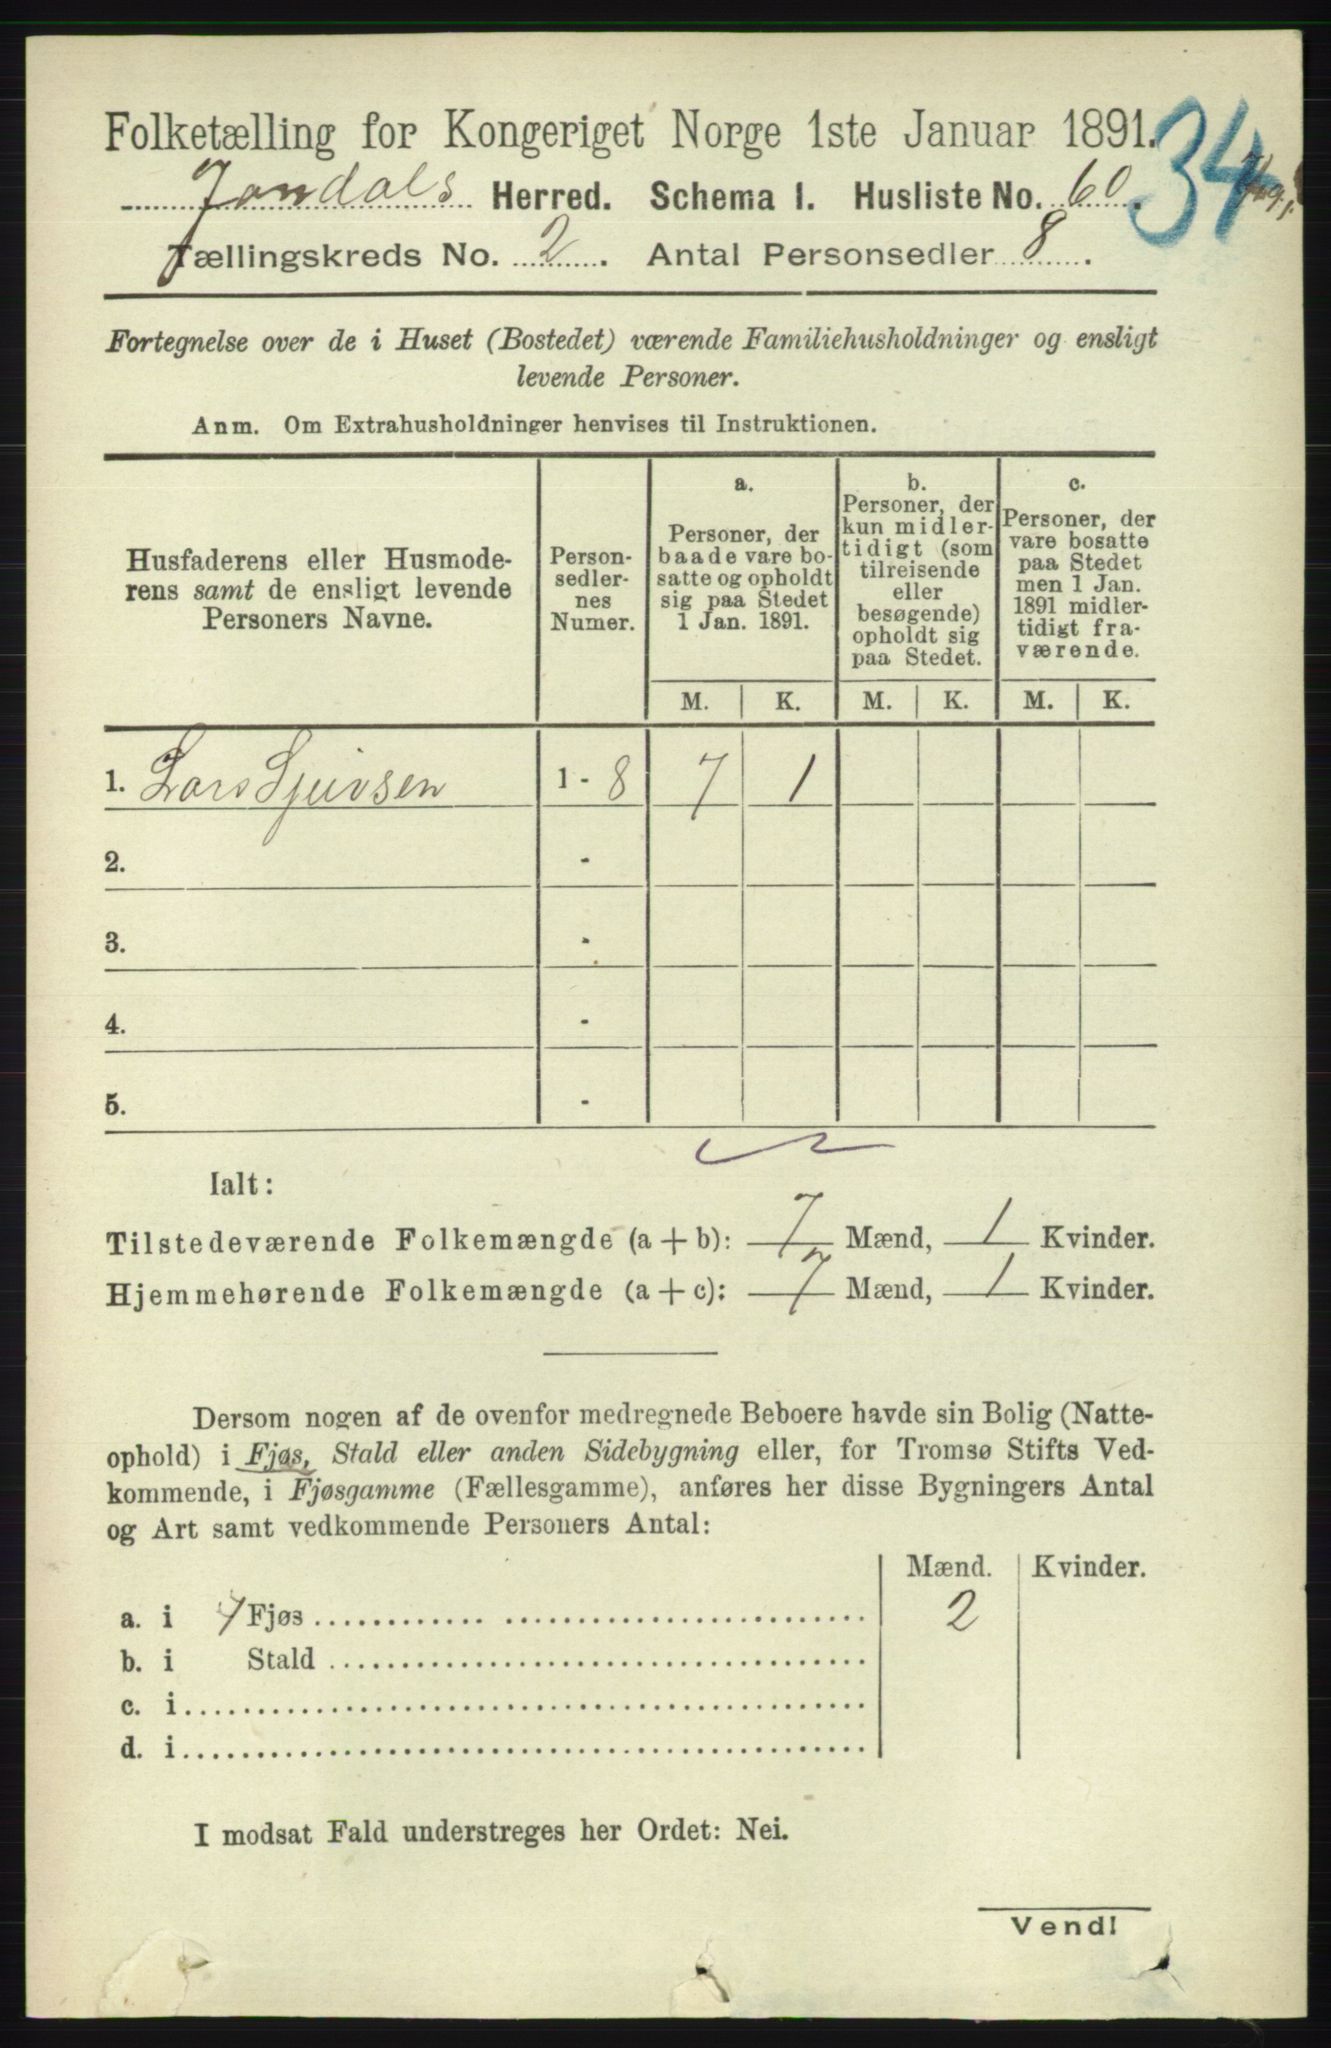 Folketælling for Kongeriget Norge 1ste Januar 1891.
34
Jondals Herred. Schema I. Husliste No. 60.
Tællingskreds No. 2. Antal Personsedler 8.
Fortegnelse over de i Huset (Bostedet) værende Familiehusholdninger og ensligt
levende Personer.
Anm. Om Extrahusholdninger henvises til Instruktionen.
Husfaderens eller Husmode-
rens samt de ensligt levende
Personers Navne.
Person-
sedler-
nes
Numer.
a.
Personer, der
baade vare bo-
satte og opholdt
sig paa Stedet
1 Jan. 1891.
b.
Personer, der
kun midler-
tidigt (som
tilreisende
eller
besøgende)
opholdt sig
paa Stedet.
c.
Personer, der
vare bosatte
paa Stedet
men 1 Jan.
1891 midler-
tidigt fra-
værende.
M. K. M. K. M. K.
1. Lars Sjursen 1 - 8 7 1
2. -
3. -
4. -
5. -
Ialt:
Tilstedeværende Folkemængde (a + b): 7 Mænd, 1 Kvinder.
Hjemmehørende Folkemængde (a + c): 7 Mænd, 1 Kvinder.
Dersom nogen af de ovenfor medregnede Beboere havde sin Bolig (Natte-
ophold) i Fjøs, Stald eller anden Sidebygning eller, for Tromsø Stifts Ved-
kommende, i Fjøsgamme (Fællesgamme), anføres her disse Bygningers Antal
og Art samt vedkommende Personers Antal:
Mænd. Kvinder.
a. i Fjøs 2
b. i Stald
c. i
d. i
I modsat Fald understreges her Ordet: Nei.
Vend!